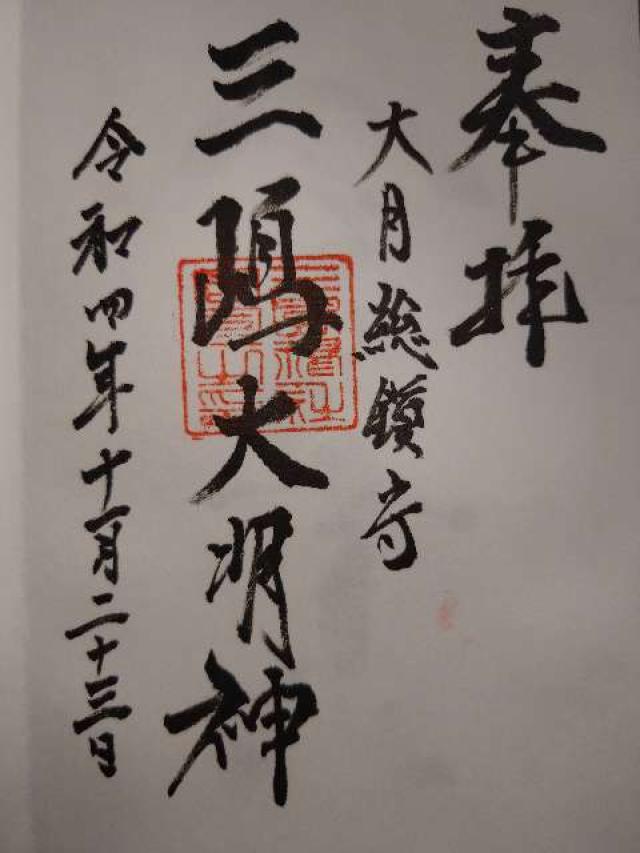 奉拝
大月総鎮守
三嶋大明神
令和四年十一月二十三日